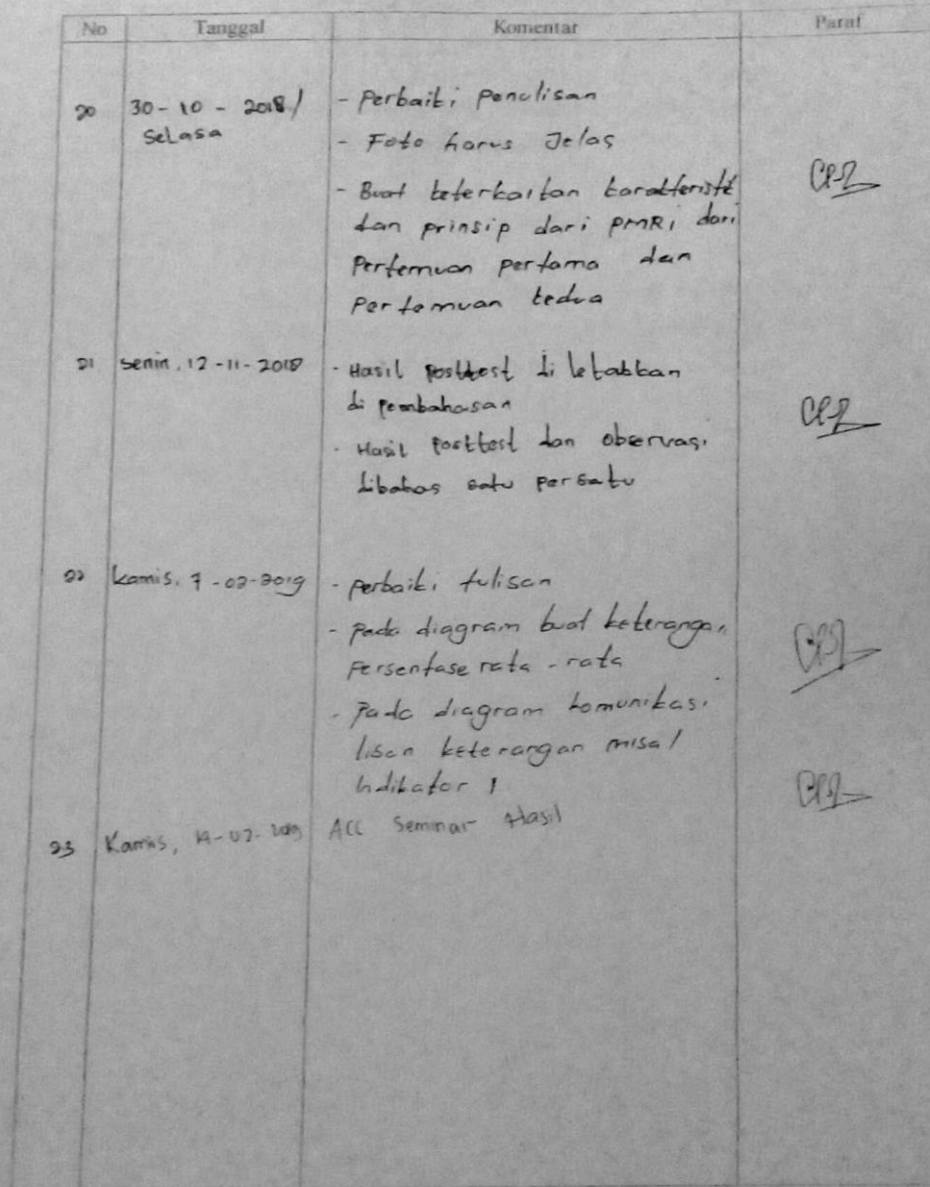 No Tanggal Komentar Paraf
20 30-10-2018/ - Perbaiki Penulisan
Selasa
- Foto harus Jelas
- Buat keterkaitan karakteristik
dan prinsip dari PMRI dari
Pertemuan pertama dan
Pertemuan kedua
21 Senin, 12-11-2018 - Hasil posttest di letakkan
di pembahasan
- Hasil posttest dan observasi
dibahas satu persatu
22 Kamis, 7-02-2019 - Perbaiki tulisan
- Pada diagram buat keterangan
Persentase rata-rata
- Pada diagram komunikasi
lisan keterangan misal
Indikator 1
23 Kamis, 14-02-2019 ACC Seminar Hasil